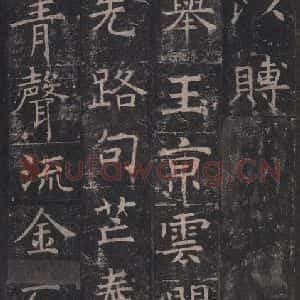 賻
舉玉京雲
先路句芒
青聲流金
Shufawang.CN